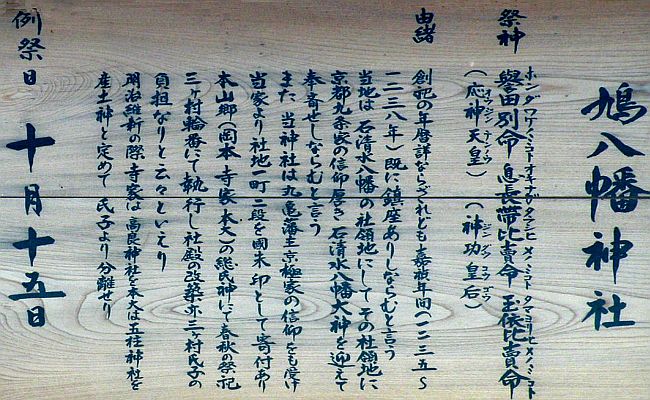 鳩八幡神社
祭神
ホンダワケノミコト オキナガタラシヒメノミコト タマヨリヒメノミコト
誉田別命 息長帯比賣命 玉依比賣命
オウジンテンノウ ジングウコウゴウ
(応神天皇) (神功皇后)
由緒
創祀の年暦詳ならざれども嘉禎年間(一二三五〜
一二三八年)既に鎮座ありしならむと言う
当地は石清水八幡の社領地にしてその社領地に
京都九条家の信仰厚き石清水八幡大神を迎えて
奉寄せしならむと言う
また 当神社は丸亀藩主京極家の信仰をも受け
当家より社地一町二段を国朱印として寄付あり
本山郷(岡本 寺家 本大)の総氏神にて春秋の祭祀
三ヶ村輪番にて執行し社殿の改築亦三ヶ村氏子の
負担なりと云々といえり
明治維新の際 寺家は高良神社を本大は五柱神社を
産土神と定めて氏子より分離せり
例祭日 十月十五日